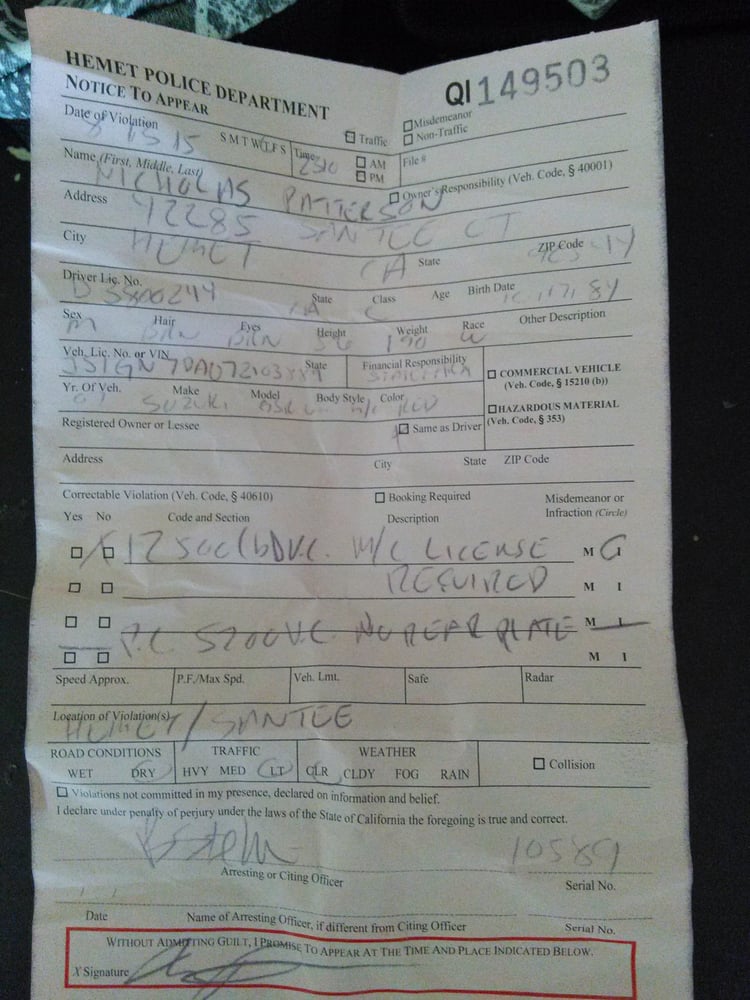 HEMET POLICE DEPARTMENT
NOTICE TO APPEAR
QI149503
Date of Violation 15 S M T W T F S Time 2310 AM PM Traffic Misdemeanor Non-Traffic
Name (First, Middle, Last) File #
NICHOLAS PATTERSON Owner's Responsibility (Veh. Code, § 40001)
Address 42285 SANTEE CT
City HEMET CA State ZIP Code
Driver Lic. No. State Class Age Birth Date
D5800244 CA C
Sex Hair Eyes Height Weight Race Other Description
M BRN BRN 190 W
Veh. Lic. No. or VIN State Financial Responsibility
COMMERCIAL VEHICLE
(Veh. Code, § 15210 (b))
Yr. Of Veh. Make Model Body Style Color
SUZUKI M/C RED
HAZARDOUS MATERIAL
(Veh. Code, § 353)
Registered Owner or Lessee Same as Driver
Address City State ZIP Code
Correctable Violation (Veh. Code, § 40610) Booking Required Misdemeanor or
Yes No Code and Section Description Infraction (Circle)
X 12500(b) V.C. M/C LICENSE M I
REQUIRED M I
5200 V.C. NO REAR PLATE M I
M I
Speed Approx. P.F./Max Spd. Veh. Lmt. Safe Radar
Location of Violation(s)
HEMET / SANTEE
ROAD CONDITIONS TRAFFIC WEATHER
WET DRY HVY MED LT CLR CLDY FOG RAIN Collision
Violations not committed in my presence, declared on information and belief.
I declare under penalty of perjury under the laws of the State of California the foregoing is true and correct.
10589
Arresting or Citing Officer Serial No.
Date Name of Arresting Officer, if different from Citing Officer Serial No.
WITHOUT ADMITTING GUILT, I PROMISE TO APPEAR AT THE TIME AND PLACE INDICATED BELOW.
X Signature